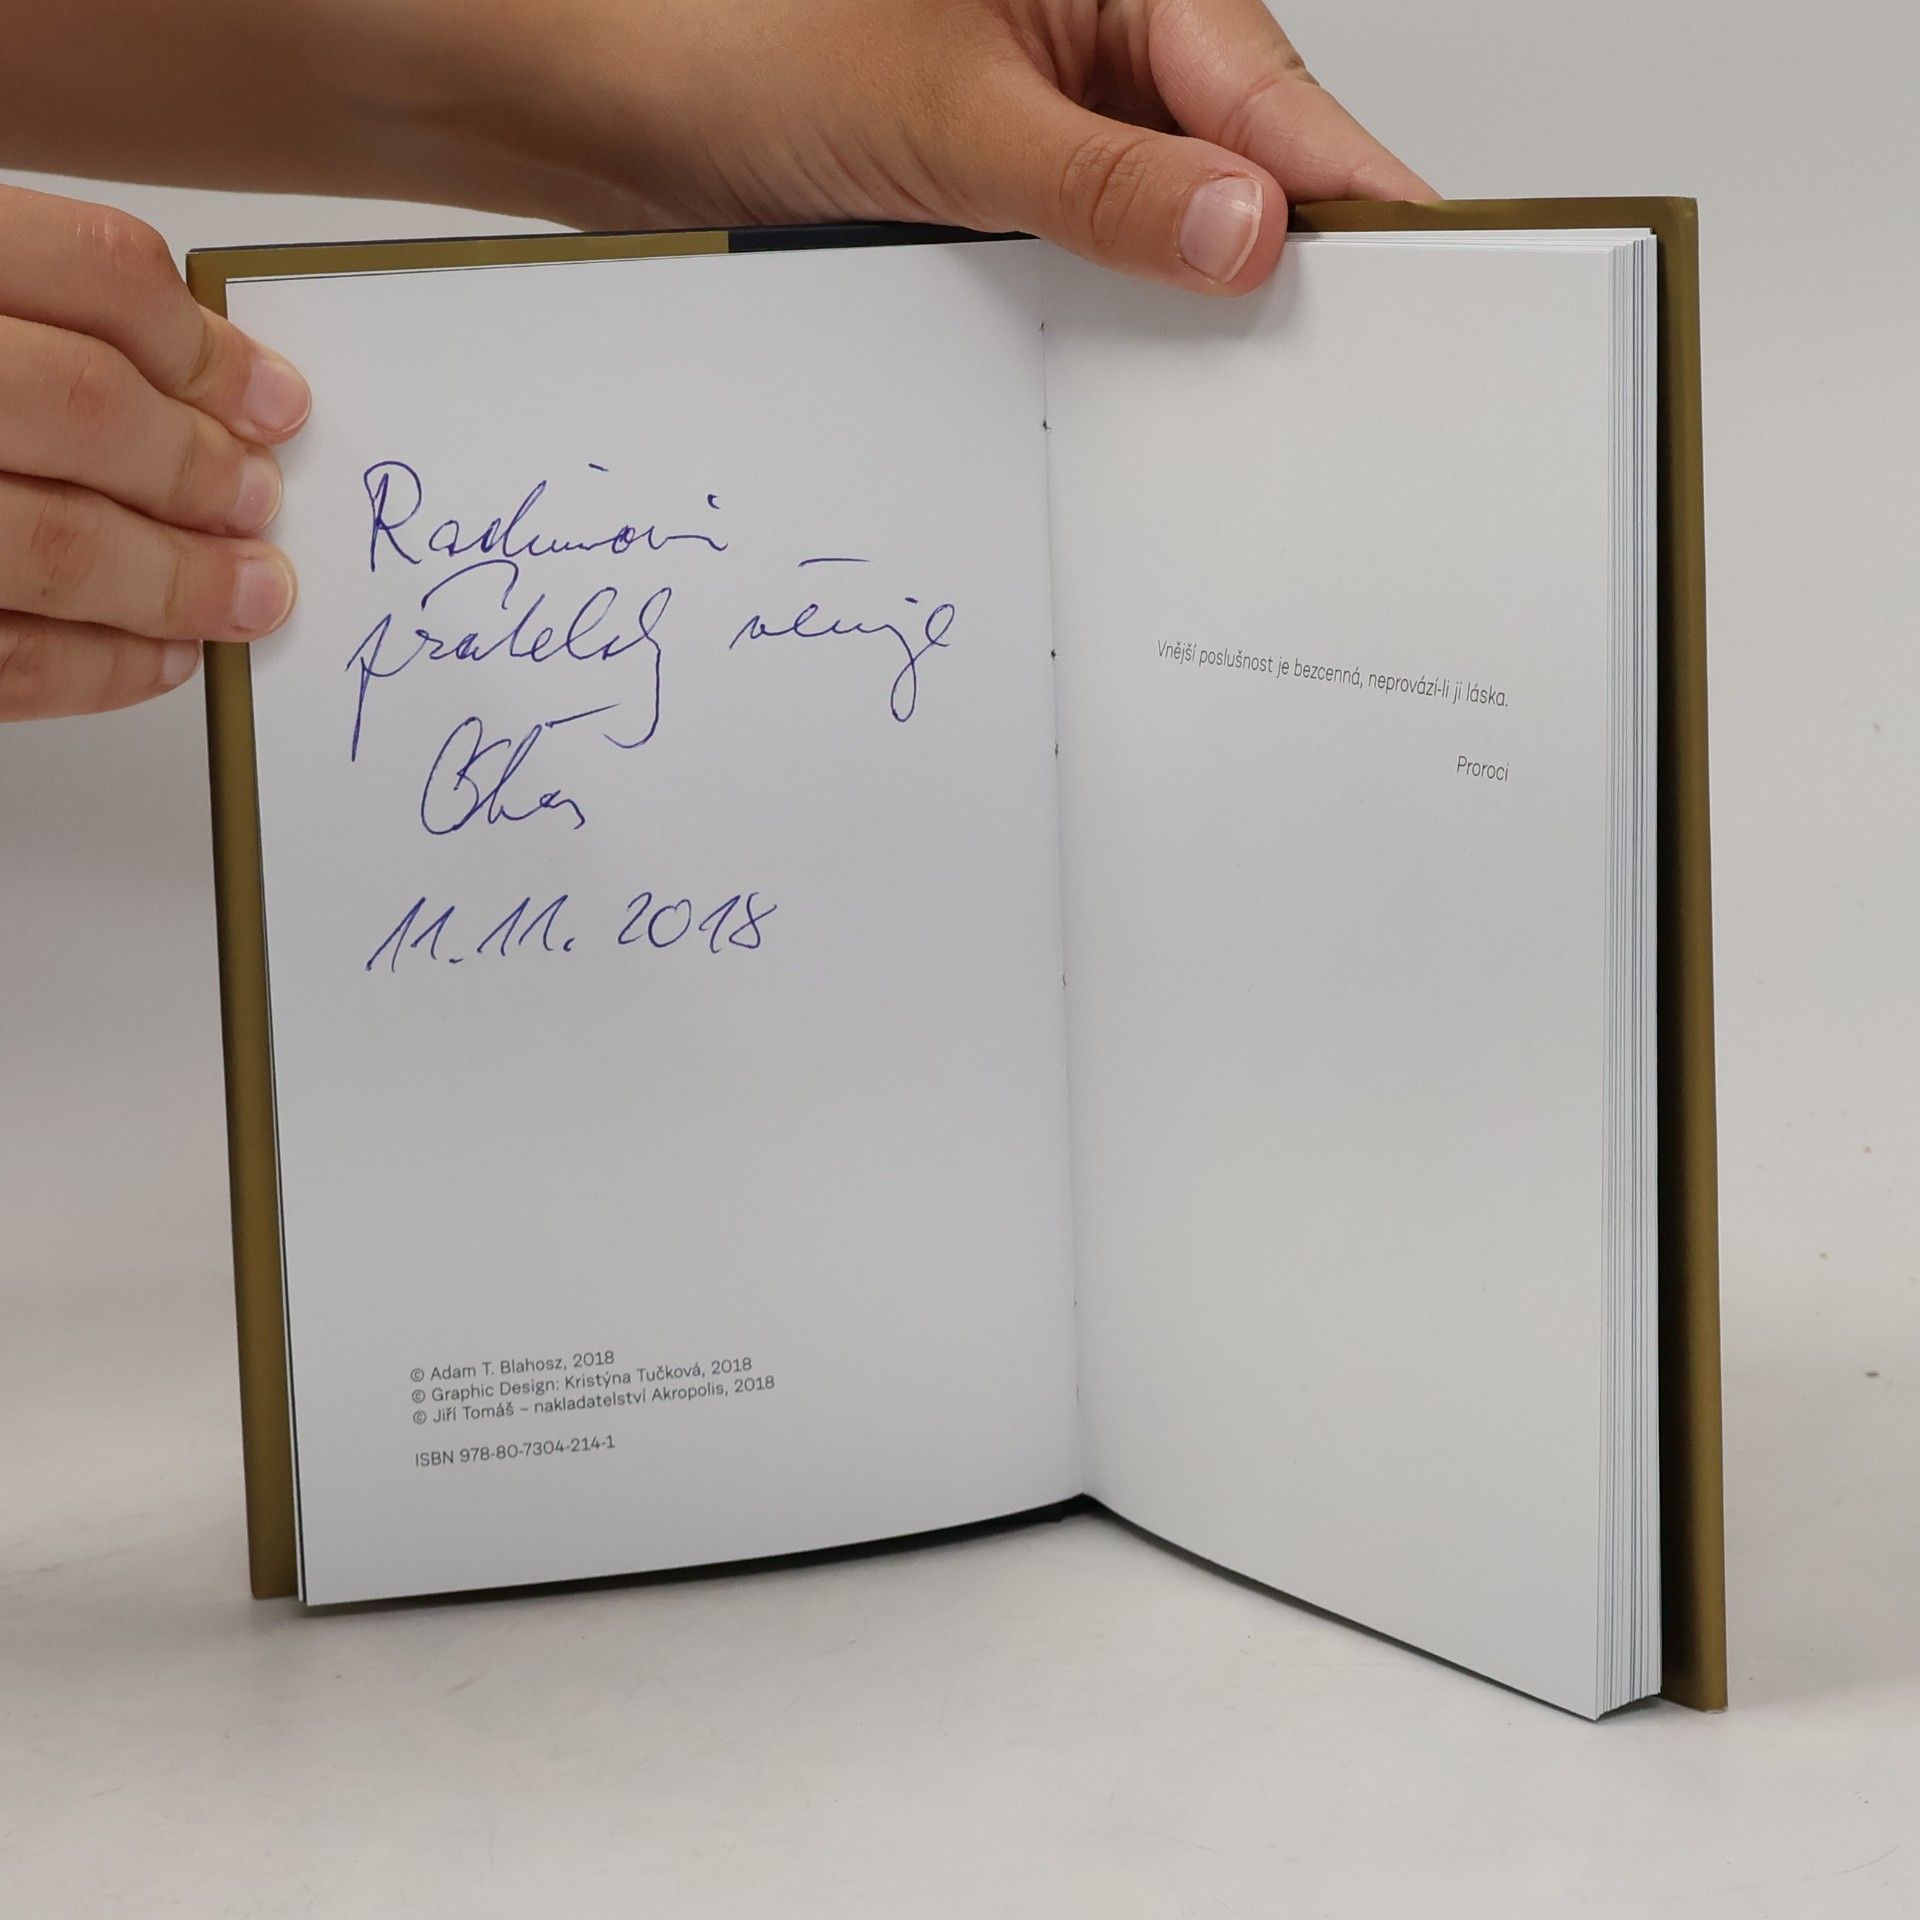 Radimovi
přátelsky věnuje
11. 11. 2018
© Adam T. Blahosz, 2018
© Graphic Design: Kristýna Tučková, 2018
© Jiří Tomáš – nakladatelství Akropolis, 2018
ISBN 978-80-7304-214-1
Vnější poslušnost je bezcenná, neprovází-li ji láska.
Proroci